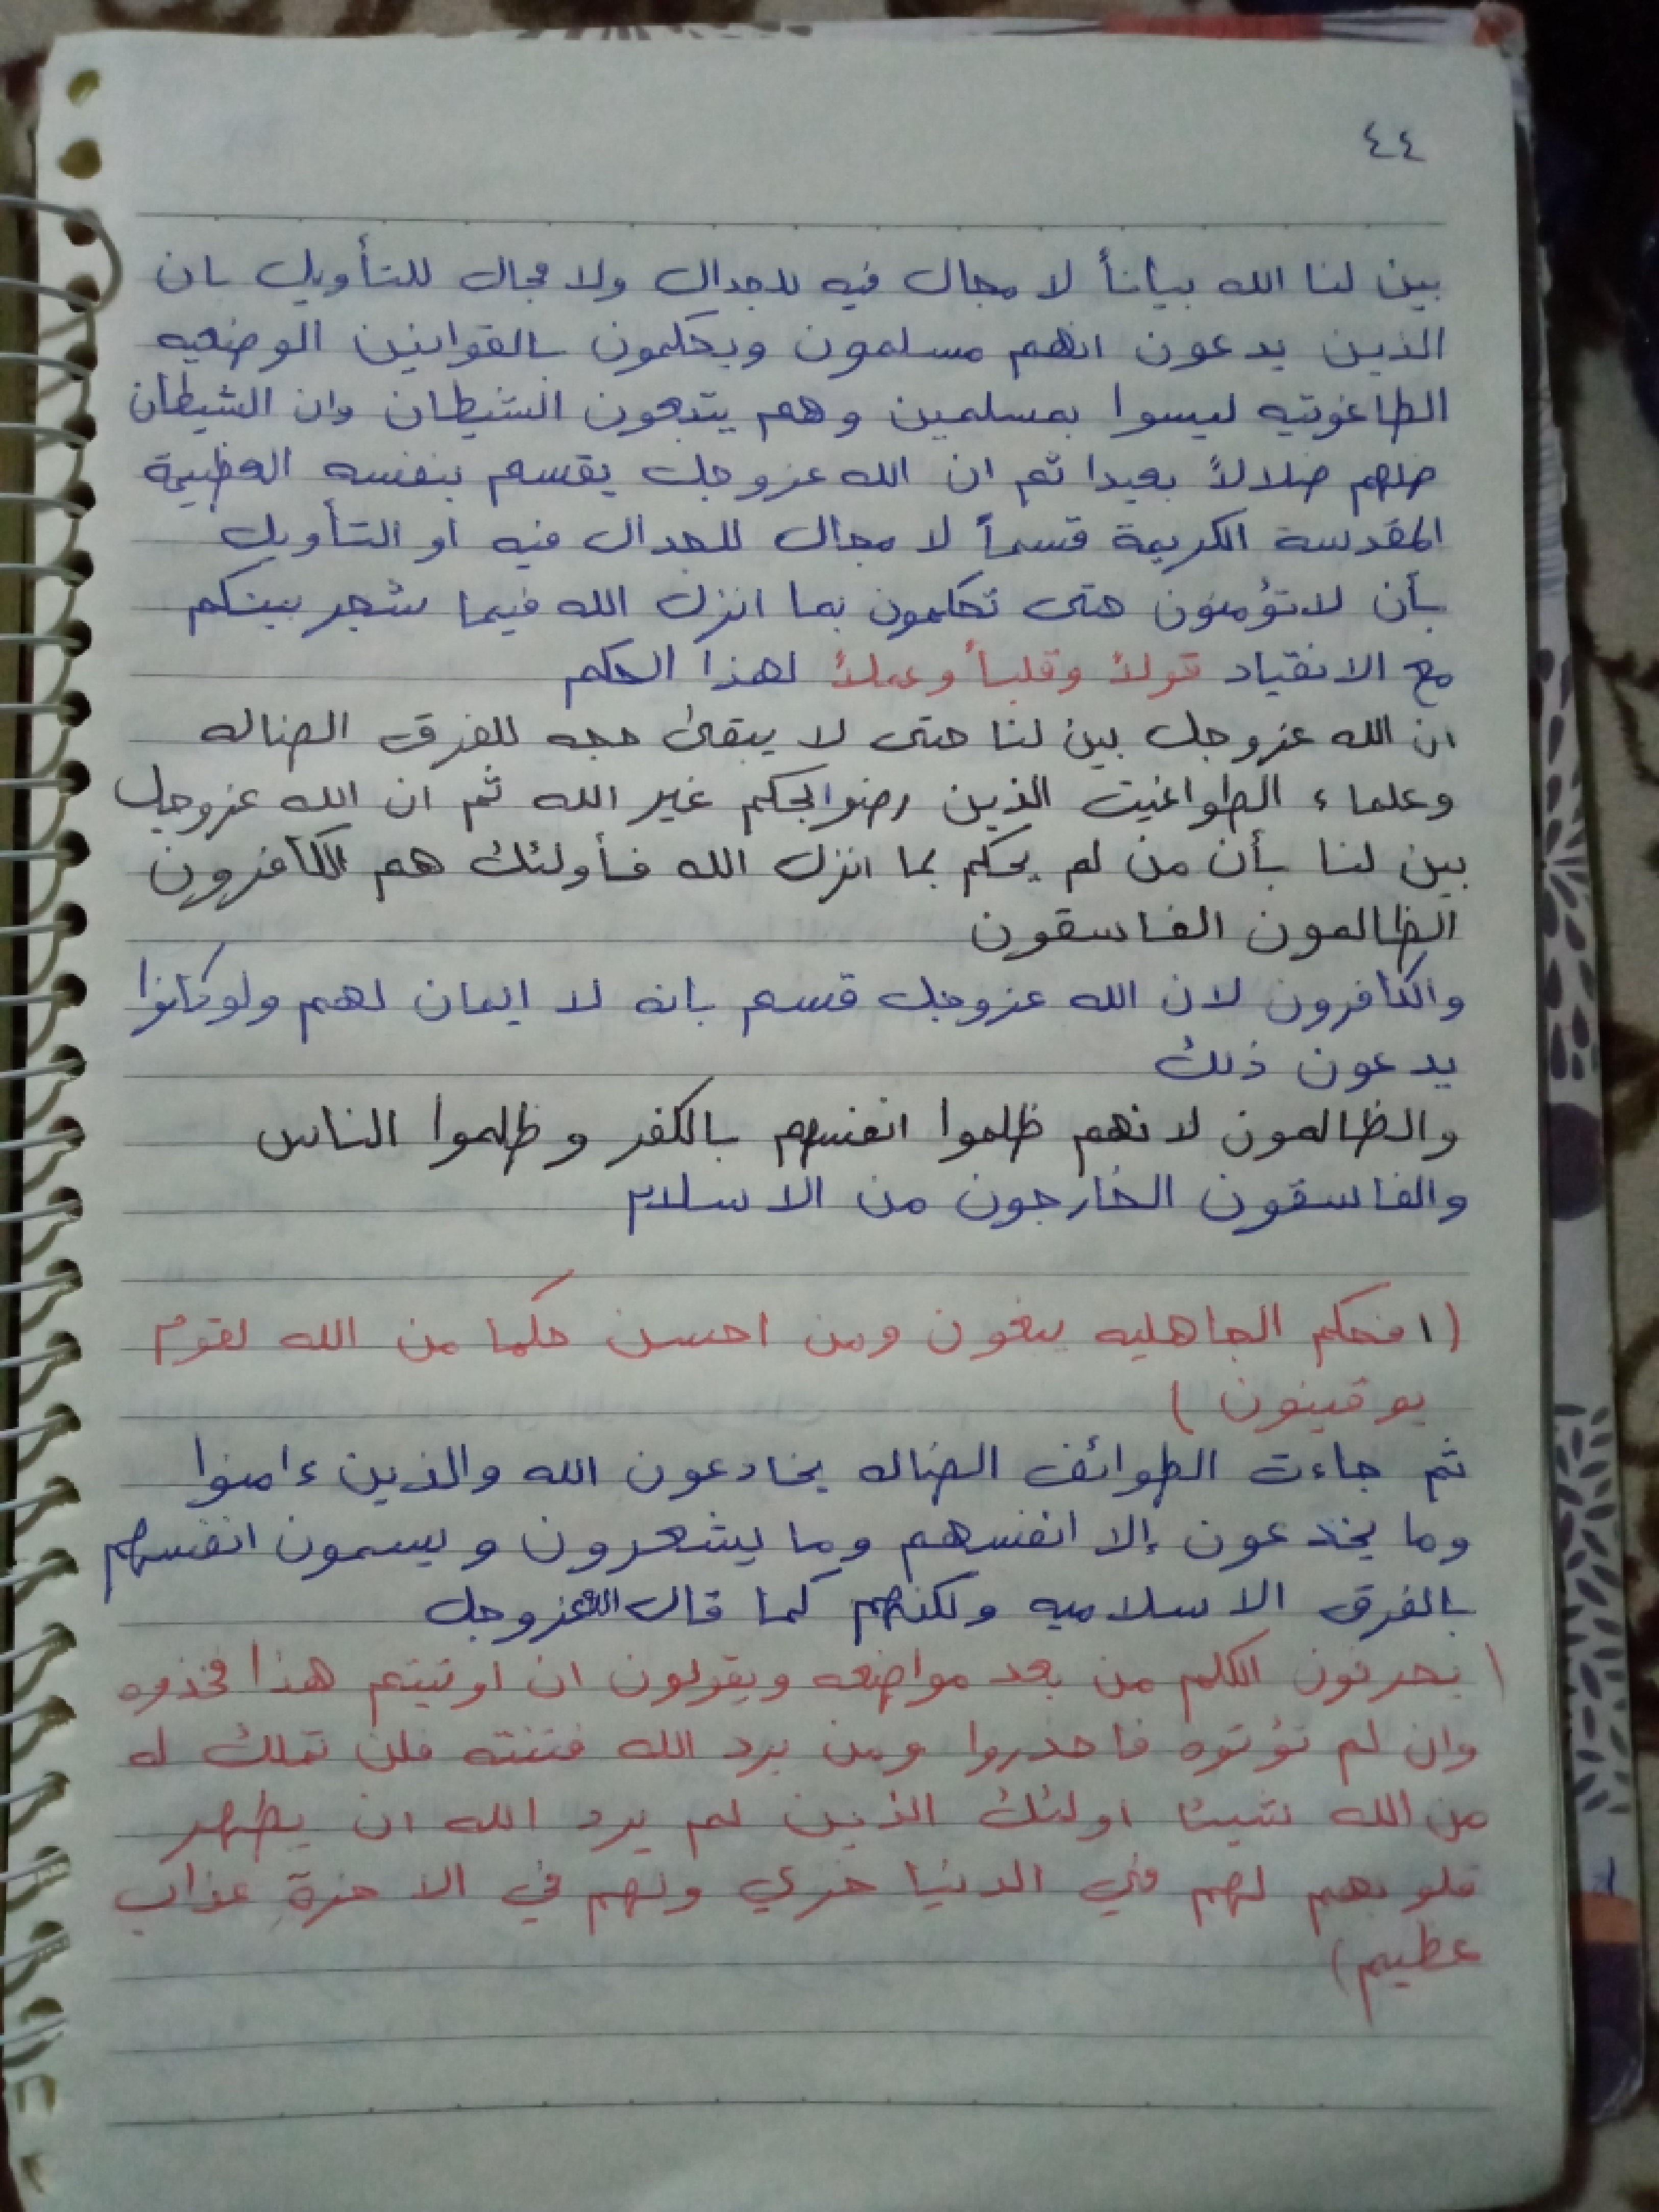 ٤٤
بين لنا الله بياناً لا مجال فيه للجدال ولا مجال للتأويل بان
الذين يدعون انهم مسلمون ويحكمون بالقوانين الوضعيه
الطاغوتيه ليسوا بمسلمين وهم يتبعون الشيطان وان الشيطان
ضلهم ضلالاً بعيدا ثم ان الله عزوجل يقسم بنفسه العظيمة
المقدسة الكريمة قسماً لا مجال للجدال فيه او التأويل
بأن لاتؤمنون حتى تحكمون بما انزل الله فيما شجر بينكم
مع الانقياد قولاً وقلباً وعملاً لهذا الحكم
ان الله عزوجل بين لنا حتى لا يبقى حجه للفرق الضاله
وعلماء الطواغيت الذين رضوا بحكم غير الله ثم ان الله عزوجل
بين لنا بأن من لم يحكم بما انزل الله فأولئك هم الكافرون
الظالمون الفاسقون
والكافرون لان الله عزوجل قسم بانه لا ايمان لهم ولوكانوا
يدعون ذلك
والظالمون لانهم ظلموا انفسهم بالكفر وظلموا الناس
والفاسقون الخارجون من الاسلام
(افحكم الجاهليه يبغون ومن احسن حكما من الله لقوم
يوقينون)
ثم جاءت الطوائف الضاله يخادعون الله والذين ءامنوا
وما يخدعون إلا انفسهم وما يشعرون ويسمون انفسهم
بالفرق الاسلاميه ولكنهم كما قال الله عزوجل
(يحرفون الكلم من بعد مواضعه ويقولون ان اوتيتم هذا فخذوه
وان لم تؤتوه فاحذروا ومن يرد الله فتنته فلن تملك له
من الله شيئا اولئك الذين لم يرد الله ان يطهر
قلوبهم لهم في الدنيا خزي ولهم في الاخرةِ عذاب
عظيم)